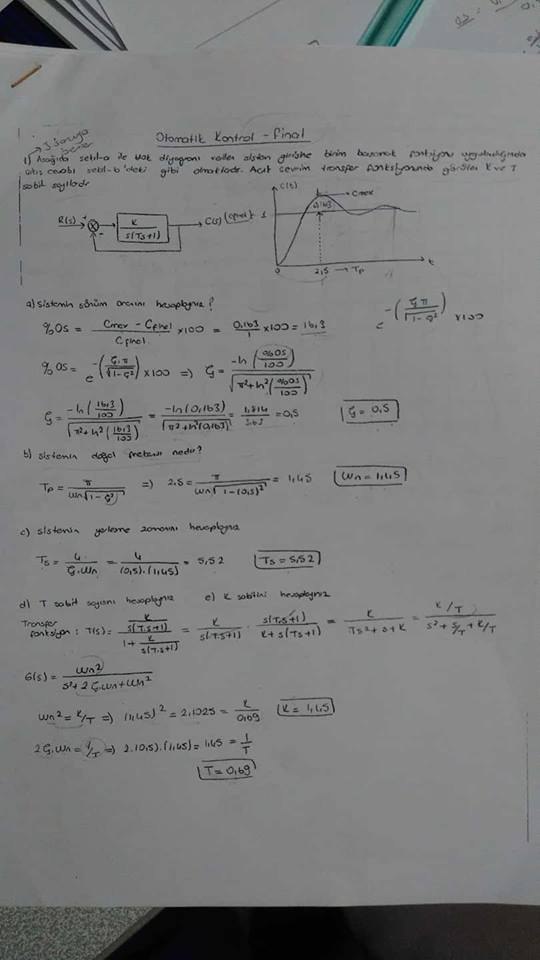 3 Soruya
benzer
Otomatik Kontrol - Final
1) Aşağıda şekil-a ile blok diyagramı verilen sistem girişine birim basamak fonksiyonu uygulandığında
çıkış cevabı şekil-b'deki gibi olmaktadır. Açık çevrim transfer fonksiyonunda görülen K ve T
sabit sayılardır.
R(s) + - K / s(Ts+1) C(s) (Cfinal) 1
C(t) Cmax 0,163
0 2,5 → Tp t
a) Sistemin sönüm oranını hesaplayınız?
%OS = (Cmax - Cfinal / Cfinal) x100 = (0,163 / 1) x100 = 16,3
e^-(ζπ/√1-ζ²) x100
%OS = e^-(ζ.π/√1-ζ²) x100 => ζ = -ln(%OS/100) / √π²+ln²(%OS/100)
ζ = -ln(16,3/100) / √π²+ln²(16,3/100) = -ln(0,163) / √π²+ln²(0,163) = 1,814 / 3,63 = 0,5 ζ = 0,5
b) sistemin doğal frekansı nedir?
Tp = π / ωn√1-ζ² => 2,5 = π / ωn√1-(0,5)² = 1,45 ωn = 1,45
c) sistemin yerleşme zamanını hesaplayınız
Ts = 4 / ζ.ωn = 4 / (0,5).(1,45) = 5,52 Ts = 5,52
d) T sabit sayısını hesaplayınız e) K sabitini hesaplayınız
Transfer
fonksiyon : T(s) = (K / s(T.s+1)) / (1 + K / s(T.s+1)) = K / s(T.s+1) . s(T.s+1) / K+s(Ts+1) = K / Ts²+s+K = K/T / s²+s/T+K/T
G(s) = ωn² / s²+2ζ.ωn+ωn²
ωn² = K/T => (1,45)² = 2,1025 = K / 0,69 K = 1,45
2ζ.ωn = 1/T => 2.(0,5).(1,45) = 1,45 = 1 / T
T = 0,69